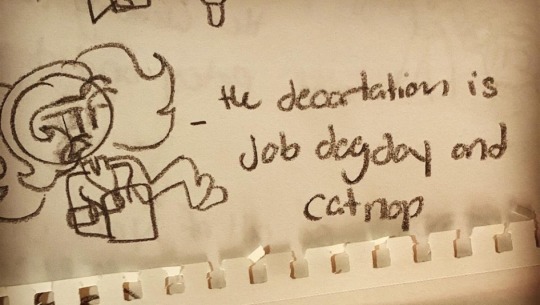 - the decortation is
Job dogday and
catnap